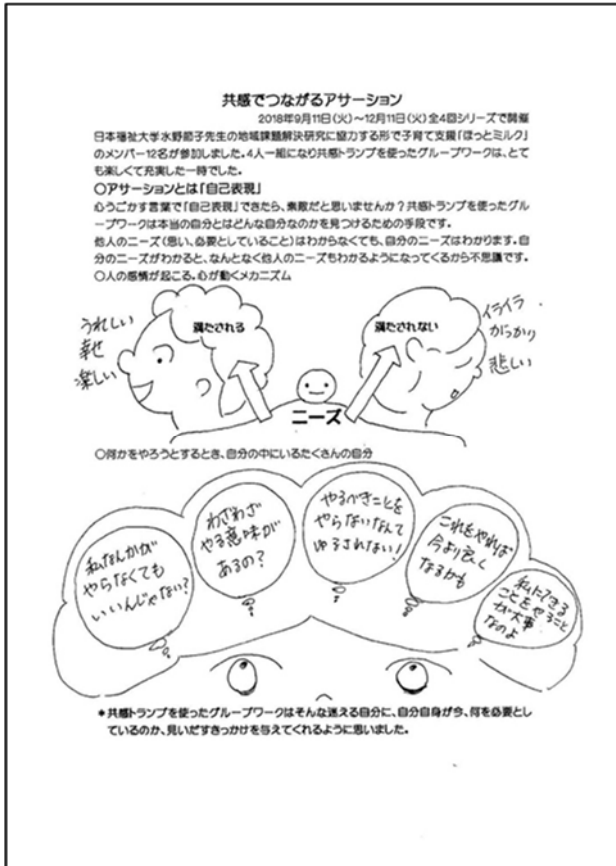 共感でつながるアサーション
2018年9月11日(火)~12月11日(火)全4回シリーズで開催
日本福祉大学水野節子先生の地域課題解決研究に協力する形で子育て支援「ほっとミルク」
のメンバー12名が参加しました。4人一組になり共感トランプを使ったグループワークは、とて
も楽しくて充実した一時でした。
○アサーションとは「自己表現」
心うごかす言葉で「自己表現」できたら、素敵だと思いませんか?共感トランプを使ったグル
ープワークは本当の自分とはどんな自分なのかを見つけるための手段です。
他人のニーズ(思い、必要としていること)はわからなくても、自分のニーズはわかります。自
分のニーズがわかると、なんとなく他人のニーズもわかるようになってくるから不思議です。
○人の感情が起こる。心が動くメカニズム
うれしい
幸せ
楽しい
満たされる
満たされない
イライラ
がっかり
悲しい
ニーズ
○何かをやろうとするとき、自分の中にいるたくさんの自分
私なんかが
やらなくても
いいんじゃない?
わざわざ
やる意味が
あるの?
やるべきことを
やらないなんて
ゆるされない!
これをやれば
今より良く
なるかも
私にできる
ことをやること
が大事
なのよ
*共感トランプを使ったグループワークはそんな迷える自分に、自分自身が今、何を必要とし
ているのか、見いだすきっかけを与えてくれるように思いました。